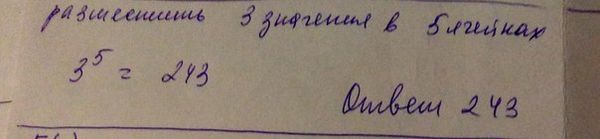 разместить 3 значения в 5 ячейках
3⁵ = 243
Ответ 243